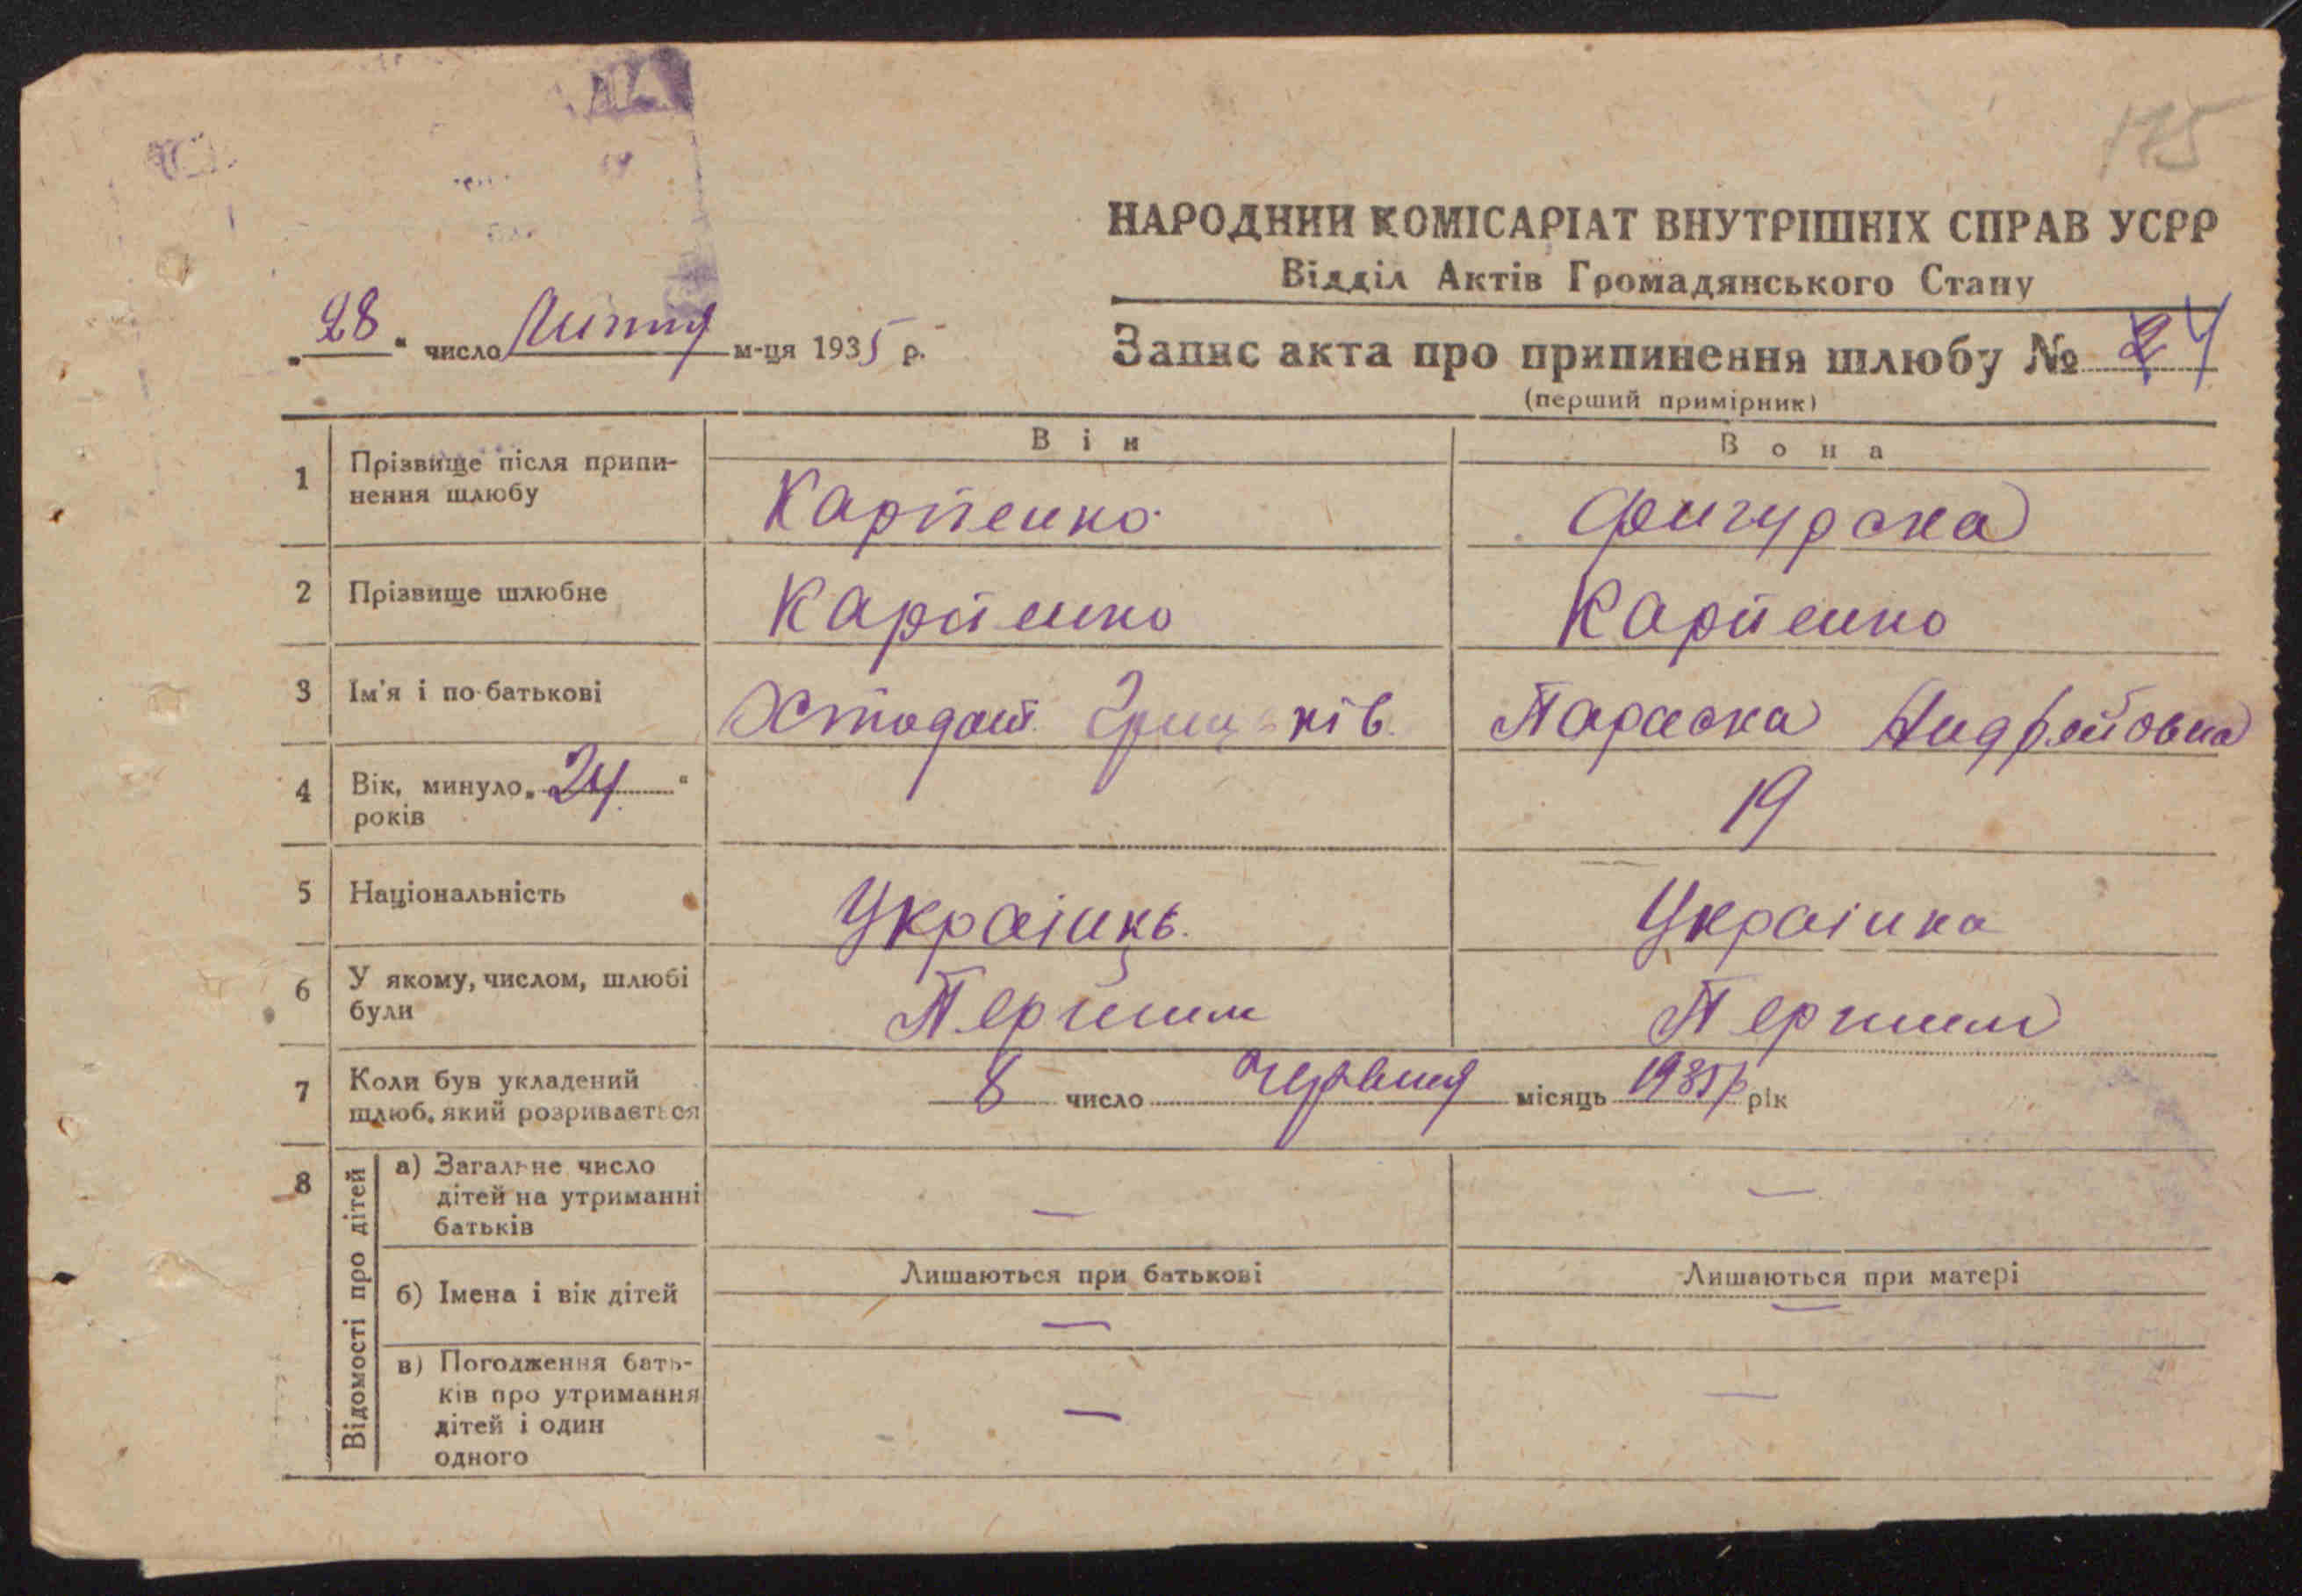 175
НАРОДНИЙ КОМІСАРІАТ ВНУТРІШНІХ СПРАВ УСРР
Відділ Актів Громадянського Стану
„28“ число Липня м-ця 1935 р.
Запис акта про припинення шлюбу №
(перший примірник)
Він Вона
1 Прізвище після припи-
нення шлюбу
Карпенко Фигурска
2 Прізвище шлюбне Карпенко Карпенко
3 Ім'я і по-батькові Параска Андрейовна
4 Вік, минуло „24“
років
19
5 Національність Українць. Українка
6 У якому, числом, шлюбі
були
Першим Першим
7 Коли був укладений
шлюб, який розривається
8 число Червня місяць 1935р рік
8 Відомості про дітей
а) Загальне число
дітей на утриманні
батьків
— —
б) Імена і вік дітей
Лишаються при батькові Лишаються при матері
— —
в) Погодження бать-
ків про утримання
дітей і один
одного
— —